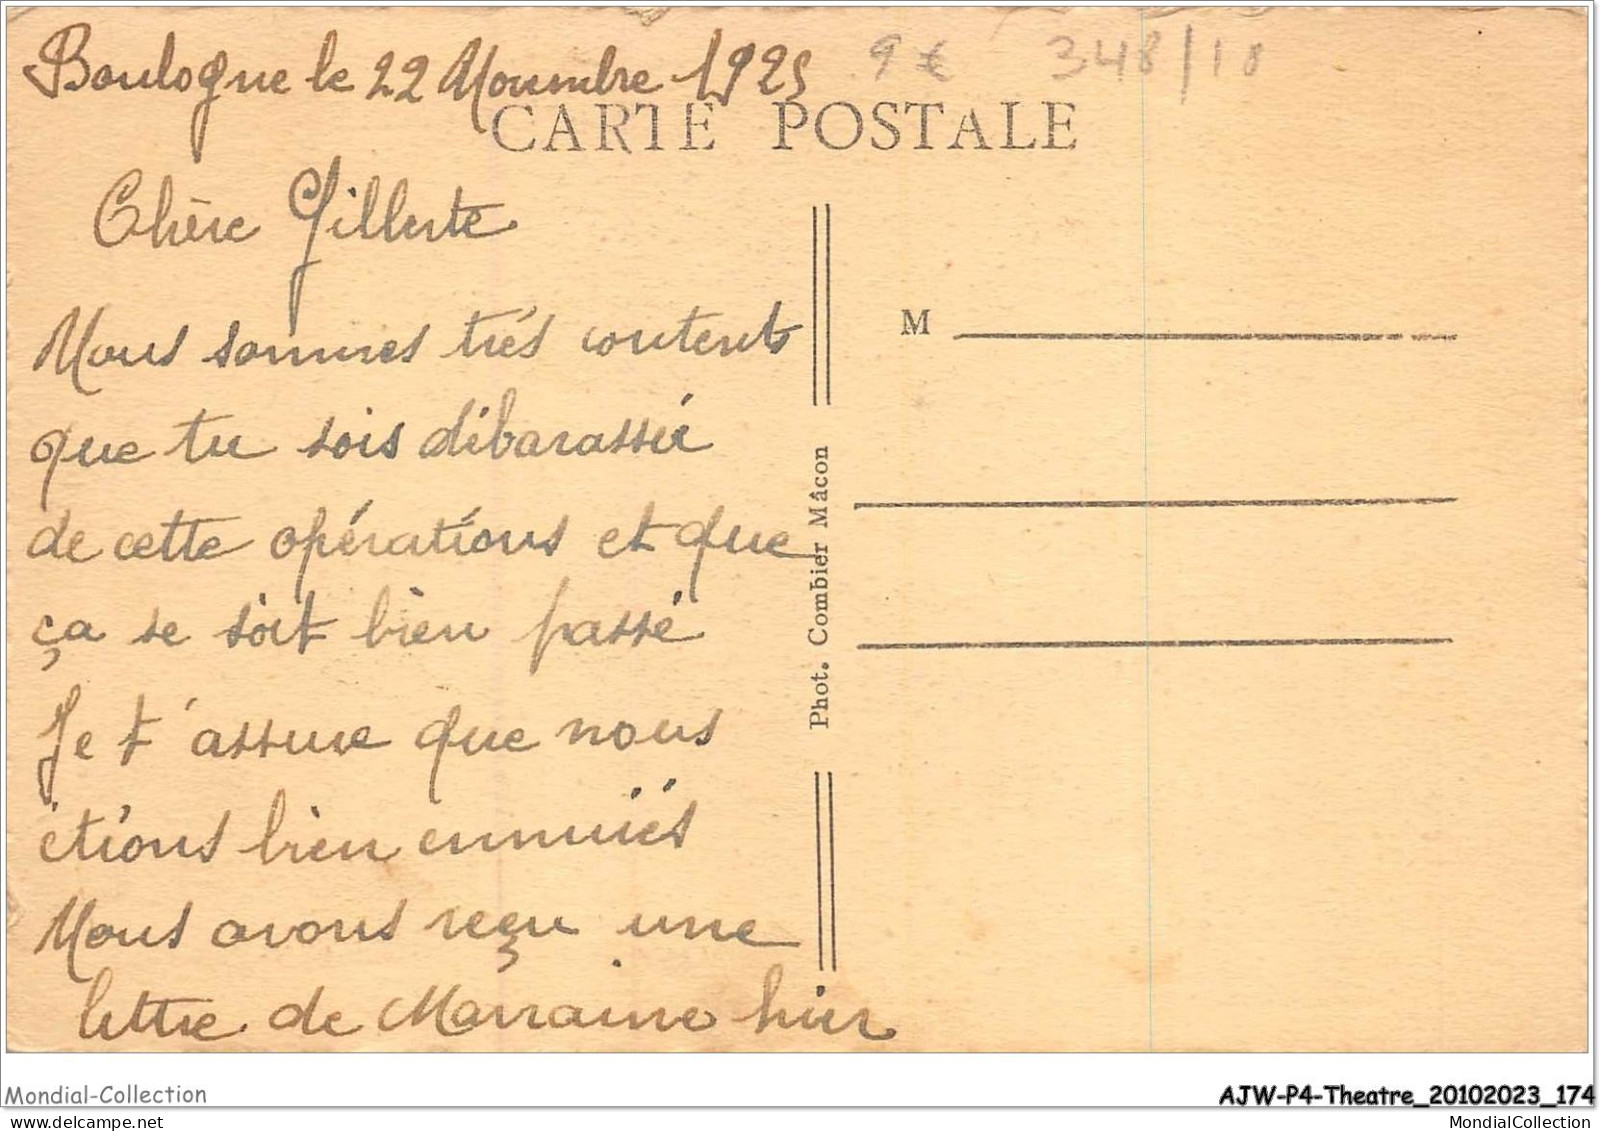 Boulogne le 22 Novembre 1925
9 € 348/18
CARTE POSTALE
Chère Gillerte
Nous sommes très contents
que tu sois débarassée
de cette opérations et que
ça se soit bien passé
Je t'assure que nous
étions bien ennuiés
Nous avons reçu une
lettre de Marraine hier
M
Phot. Combier Mâcon
Mondial-Collection
AJW-P4-Theatre_20102023_174
www.delcampe.net
MondialCollection